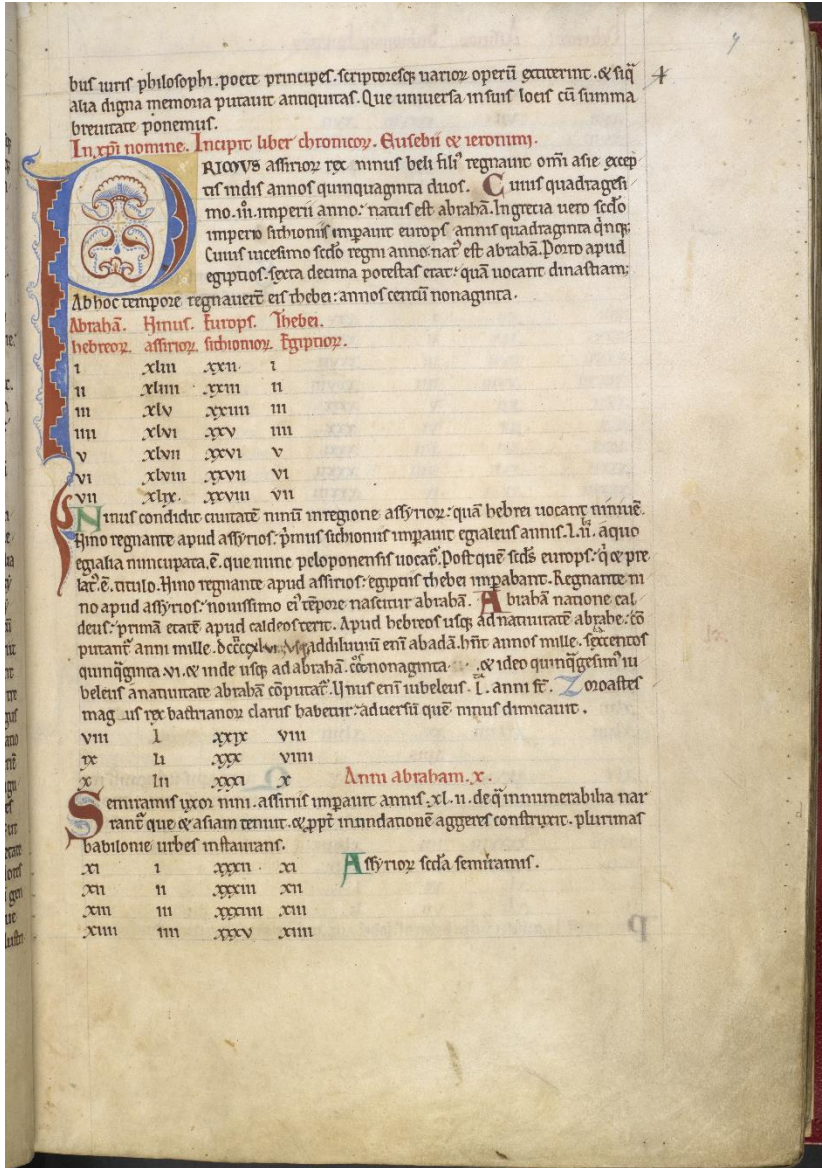 bus uiris philosophi. poete principes. scriptoresq; uarioꝝ operū extiterint. & siq̄
alia digna memoria putauit antiquitas. Que uniuersa in suis locis cū summa
breuitate ponemus.
In xp̄i nomine. Incipit liber chronicoꝝ. Eusebii & ieronimi.
PRIMVS assirioꝝ rex ninus beli fili᾽ regnauit om̄i asie excep
tis indis annos quinquaginta duos. Cuius quadragesi
mo. iii. imperii anno: natus est abrahā. In grecia uero scd̄o
imperio sichioniis imꝑauit europs annis quadraginta q̄nq;
Cuius uicesimo scd̄o regni anno nat᾽ est abrahā. Porro apud
egiptios. sexta decima potestas erat: quā uocant dinastiam;
Ab hoc tempore regnauert̄ eis thebei: annos centū nonaginta.
Abrahā. Ninus. Europs. Thebei.
hebreoꝝ. assirioꝝ. sichionioꝝ. Egiptioꝝ.
i xliii xxii. i
ii xliiii xxiii ii
iii xlv xxiiii iii
iiii xlvi xxv iiii
v xlvii xxvi v
vi xlviii xxvii vi
vii xlix. xxviii vii
Ninus condidit ciuitatē ninū in regione assyrioꝝ: quā hebrei uocant niniuē.
Nino regnante apud assyrios: p̄mus sichioniis imꝑauit egialeus annis. l. ii. a quo
egialia nuncupata. ē. que nunc peloponensis uocat᷑. Post quē scd̄s europs: q̇ & pre
lat᾽. ē. titulo. Nino regnante apud assirios: egiptiis thebei imꝑabant. Regnante ni
no apud assyrios: nouissimo ei᾽ tēpore nascitur abrahā. Abrahā natione cal
deus: primā etatē apud caldeos terit. Apud hebreos usq; ad natiuitatē abrahe: cō
putant᷑ anni mille. dccccxlvi. Vsq; ad diluuiū eni᷑ ab adā. hn̄t annos mille. sexcentos
quinq̄ginta. vi. & inde usq; ad abrahā. nonaginta & ideo quinq̄gesim᾽ iu
beleus a natiuitate abrahā cōputat᷑. Unus eni᷑ iubeleus. l. anni st̄. Zoroastes
mag us rex bactrianoꝝ clarus habetur: aduersū quē ninus dimicauit.
viii l xxix viii
ix li xxx viiii
x lii xxxi x Anni abraham. x.
Semiramis uxor nini. assiriis imꝑauit annis. xl. ii. de q̄ innumerabilia nar
rant᷑ que & asiam tenuit. & ꝓpt̄ inundationē aggeres construxit. plurimas
babilonie urbes instaurans.
xi i xxxii. xi Assyrioꝝ scd̄a semiramis.
xii ii xxxiii xii
xiii iii xxxiiii xiii
xiiii iiii xxxv xiiii